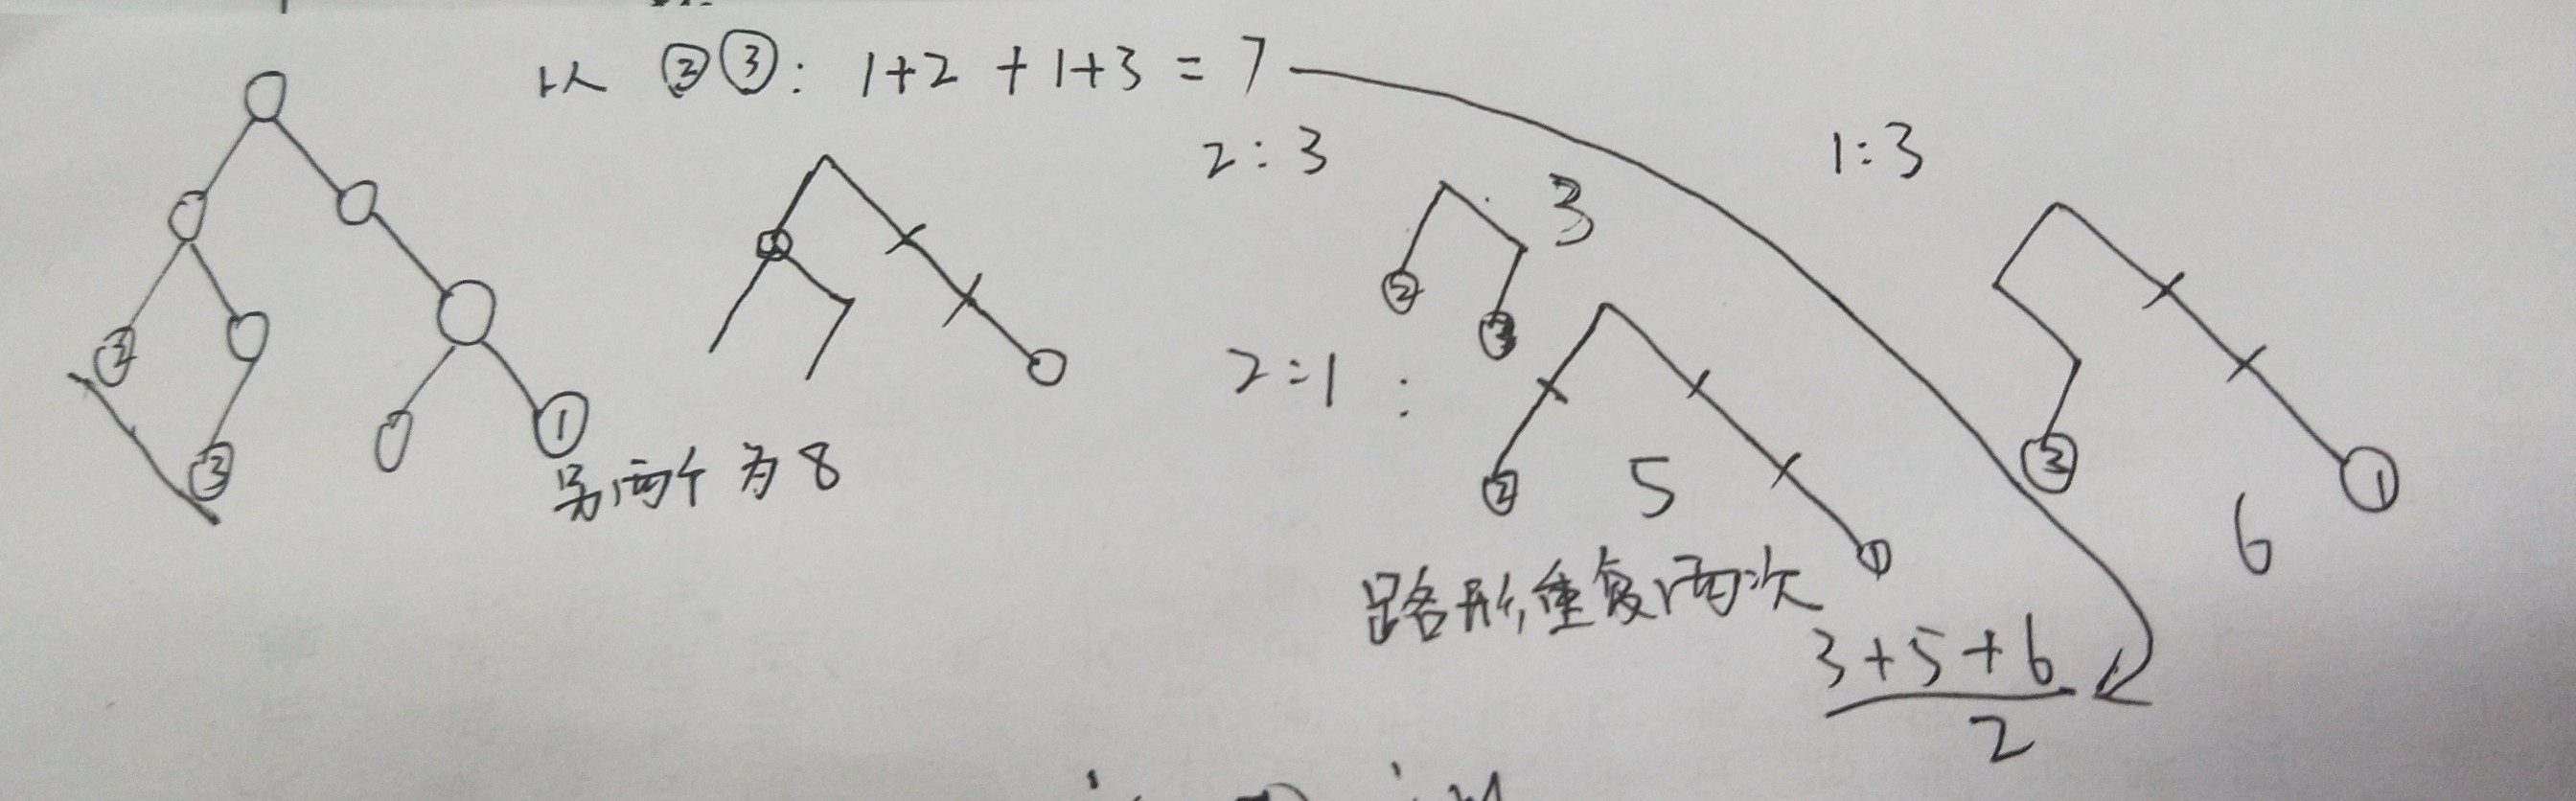 以 ②③: 1+2 + 1+3 = 7
2:3
1:3
3
② ③
2:1 :
② ③ ①
另两个为8
② 5 ①
③ ① 6
路形重复两次
3+5+6
2